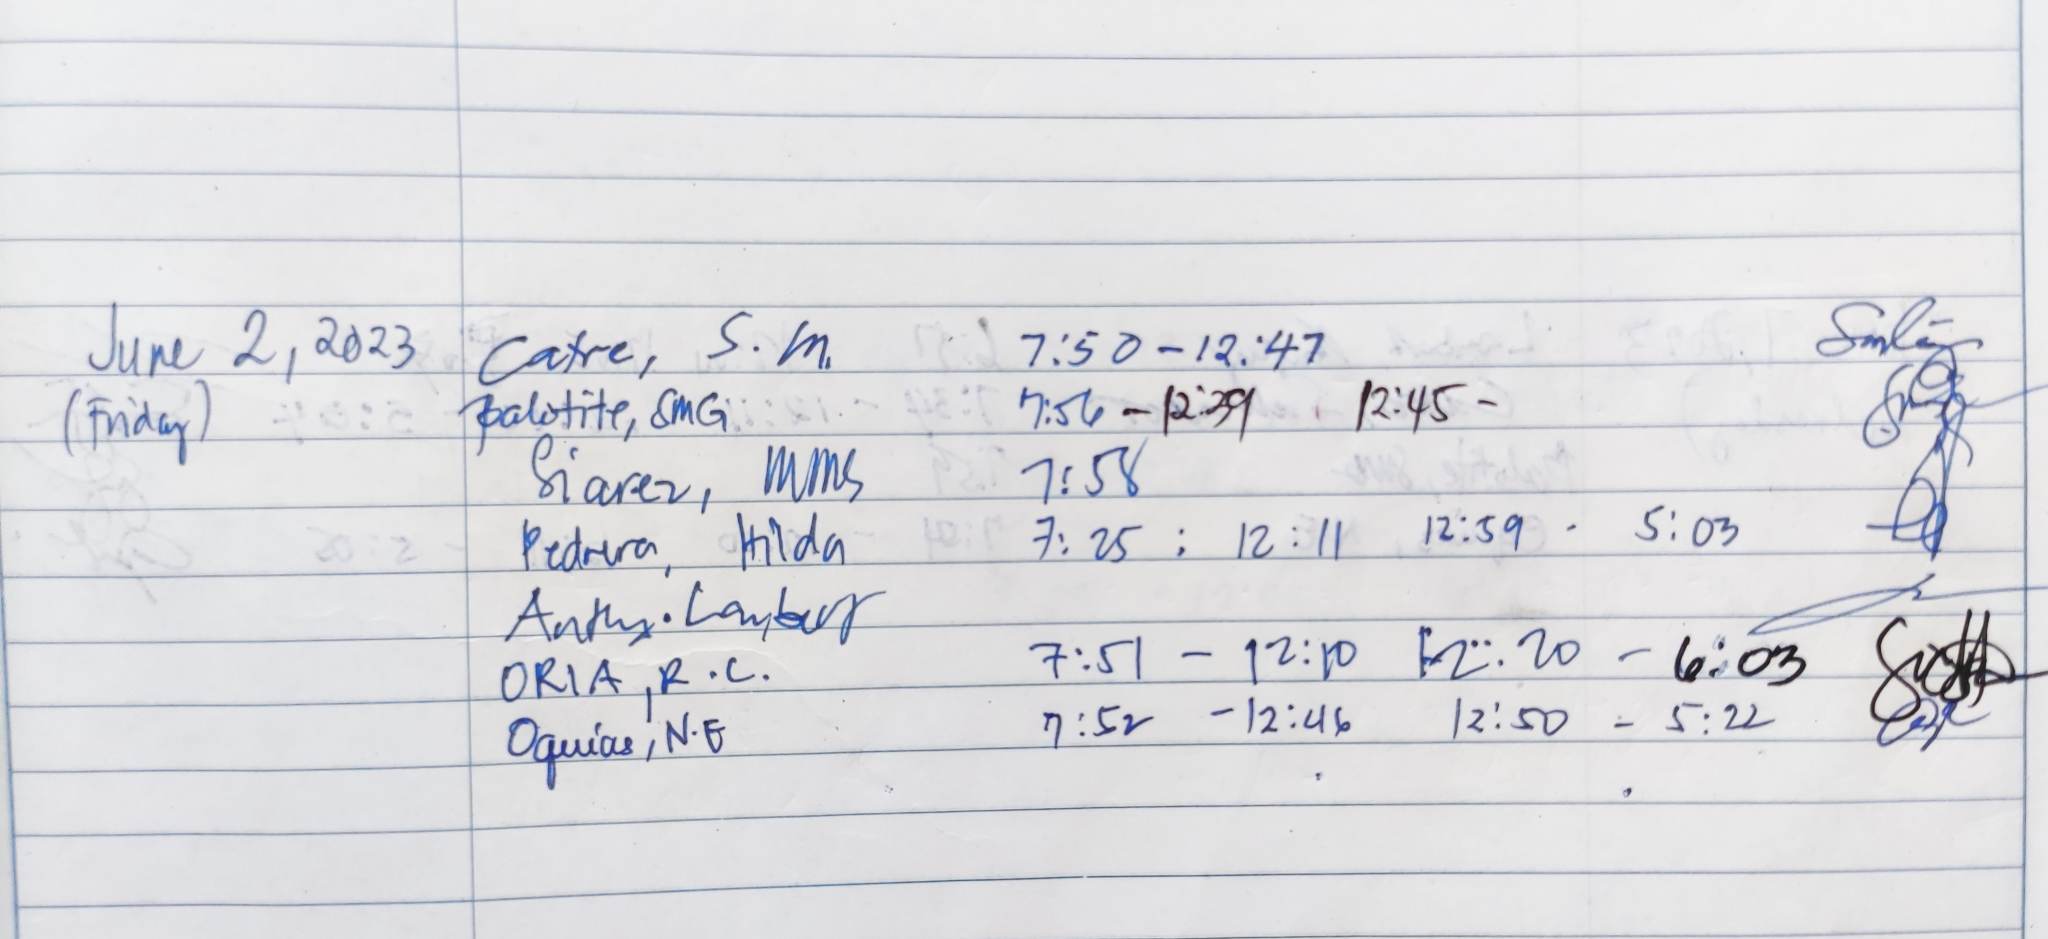 June 2, 2023 Catre, S.M. 7:50 - 12:47
(Friday) palotite, SMG 7:56 - 12:39 12:45 -
Siarez, MMS 7:58
Pedrera, Hilda 7:25 : 12:11 12:59 - 5:03
ORIA, R.C. 7:51 - 12:10 12:20 - 6:03
Oquias, N.E 7:52 - 12:46 12:50 - 5:22